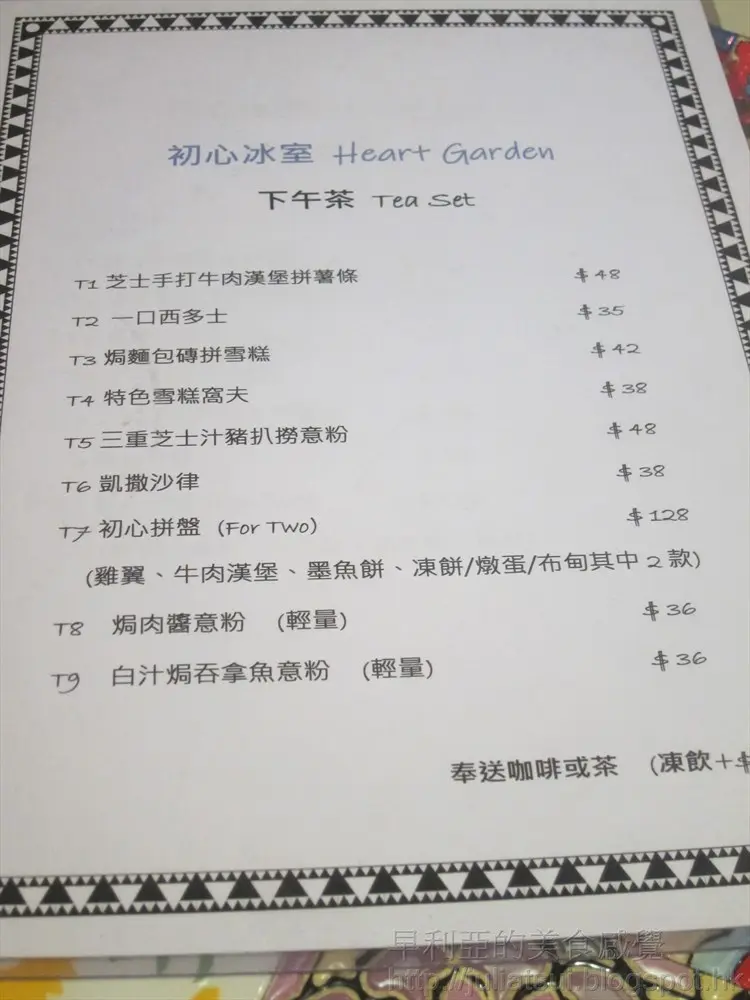 初心冰室 Heart Garden
下午茶 Tea Set
T1 芝士手打牛肉漢堡拼薯條 $48
T2 一口西多士 $35
T3 焗麵包磚拼雪糕 $42
T4 特色雪糕窩夫 $38
T5 三重芝士汁豬扒撈意粉 $48
T6 凱撒沙律 $38
T7 初心拼盤 (For Two) $128
(雞翼、牛肉漢堡、墨魚餅、凍餅/燉蛋/布甸其中2款)
T8 焗肉醬意粉 (輕量) $36
T9 白汁焗吞拿魚意粉 (輕量) $36
奉送咖啡或茶 (凍飲+$
早利亞的美食感覺
http://juliatsui.blogspot.hk